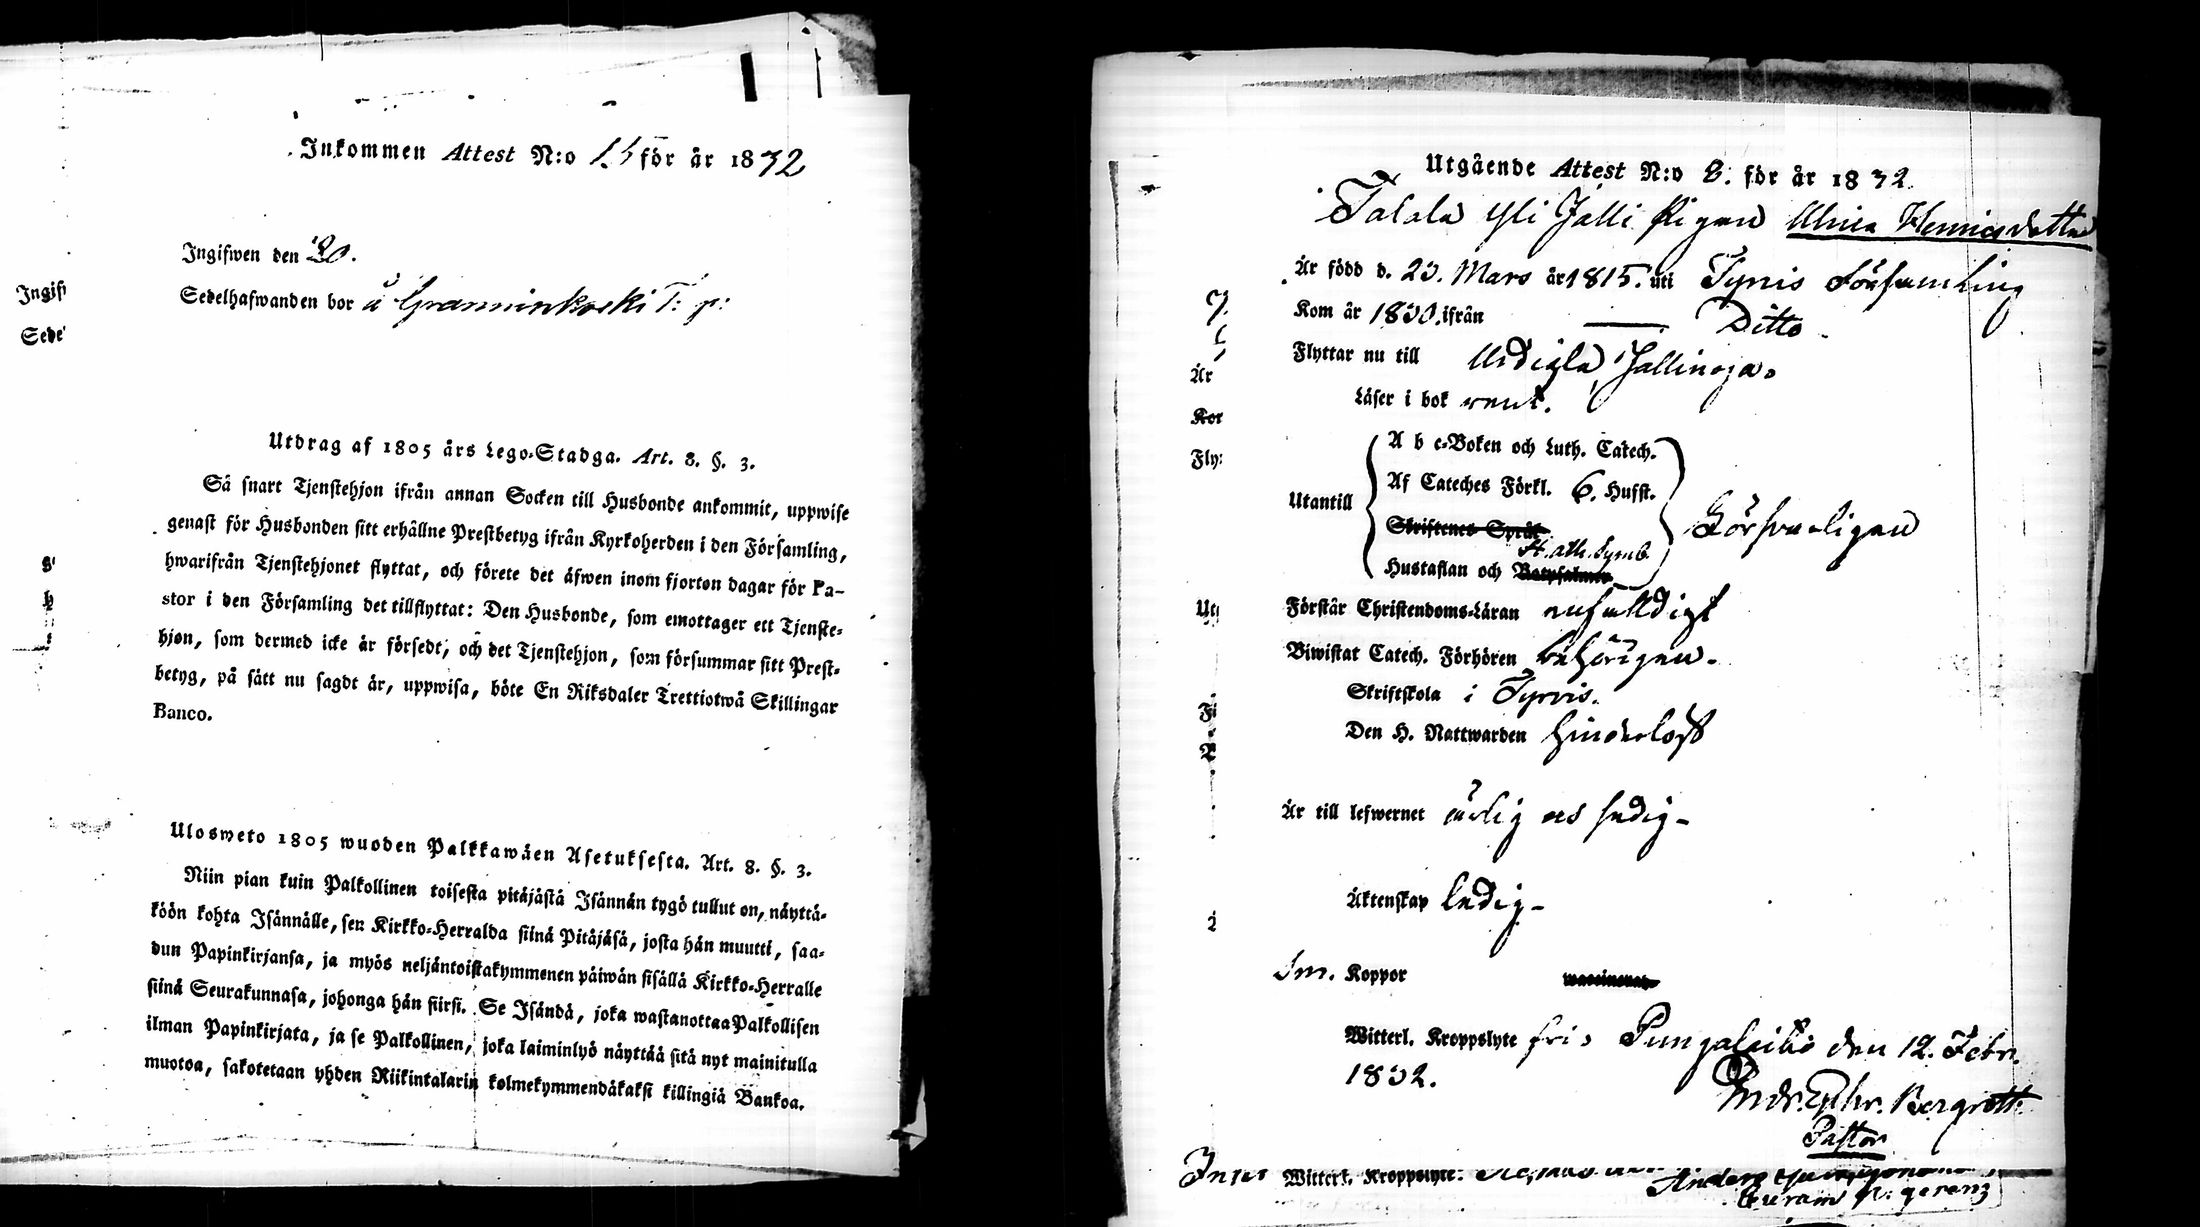 Inkommen Attest N:o 15 för år 1832
Ingifwen den 20.
Sedelhafwanden bor å
Utdrag af 1805 års Lego-Stadga. Art. 8. §. 3.
Så snart Tjenstehjon ifrån annan Socken till Husbonde ankommit, uppwise
genast för Husbonden sitt erhållne Prestbetyg ifrån Kyrkoherden i den Församling,
hwarifrån Tjenstehjonet flyttat, och förete det äfwen inom fjorton dagar för Pa-
stor i den Församling det tillflyttat: Den Husbonde, som emottager ett Tjenste-
hjon, som dermed icke är försedt, och det Tjenstehjon, som försummar sitt Prest-
betyg, på sätt nu sagdt är, uppwisa, böte En Riksdaler Trettiotwå Skillingar
Banco.
Ulosweto 1805 wuoden Palkkawäen Asetuksesta. Art. 8. §. 3.
Niin pian kuin Palkollinen toisesta pitäjästä Isännän tygö tullut on, näyttä-
köön kohta Isännälle, sen Kirkko-Herralda siinä Pitäjäsä, josta hän muutti, saa-
dun Papinkirjansa, ja myös neljäntoistakymmenen päiwän sisällä Kirkko-Herralle
siinä Seurakunnasa, johonga hän siirsi. Se Isändä, joka wastanottaa Palkollisen
ilman Papinkirjata, ja se Palkollinen, joka laiminlyö näyttää sitä nyt mainitulla
muotoa, sakotetaan yhden Riikintalarin kolmekymmendäkaksi killingiä Bankoa.
Utgående Attest N:o 8. för år 1832.
Talala Yli Jalli Pigan Ulrica Henricsdotter
Är född d. 23. Mars år 1815. uti Tyrvis Församling
Kom år 1830. ifrån — Ditto
Flyttar nu till Urdiala,
Läser i bok rent.
Utantill
A b c-Boken och Luth. Catech.
Af Cateches Förkl. 6. Hufst.
Skriftenes Språk
St. ath. Symb.
Hustaflan och Botpsalmer
Försvarligen
Förstår Christendoms-Läran enfaldigt
Biwistat Catech. Förhören behörigen.
Skriftskola i Tyrvis.
Den H. Nattwarden
Är till lefwernet ärlig och sedig-
Äktenskap ledig-
Koppor vaccinerat
Witterl. Kroppslyte fri, Pungalaitio den 12. Febr.
1832.
Andr. Ephr. Bergroth
Pastor
Witterl. Kroppslyte.